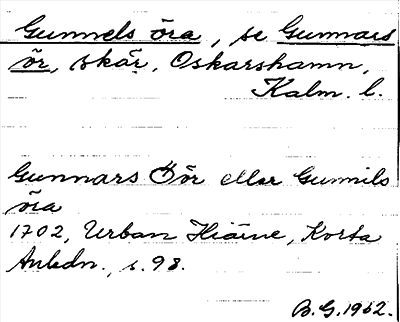 Gunnels öra, se Gunnars
ör, skär, Oskarshamn,
Kalm. l.
Gunnars Öör eller Gunnils
öra
1702, Urban Hiärne, Korta
Anledn., s. 98.
B.G. 1962.